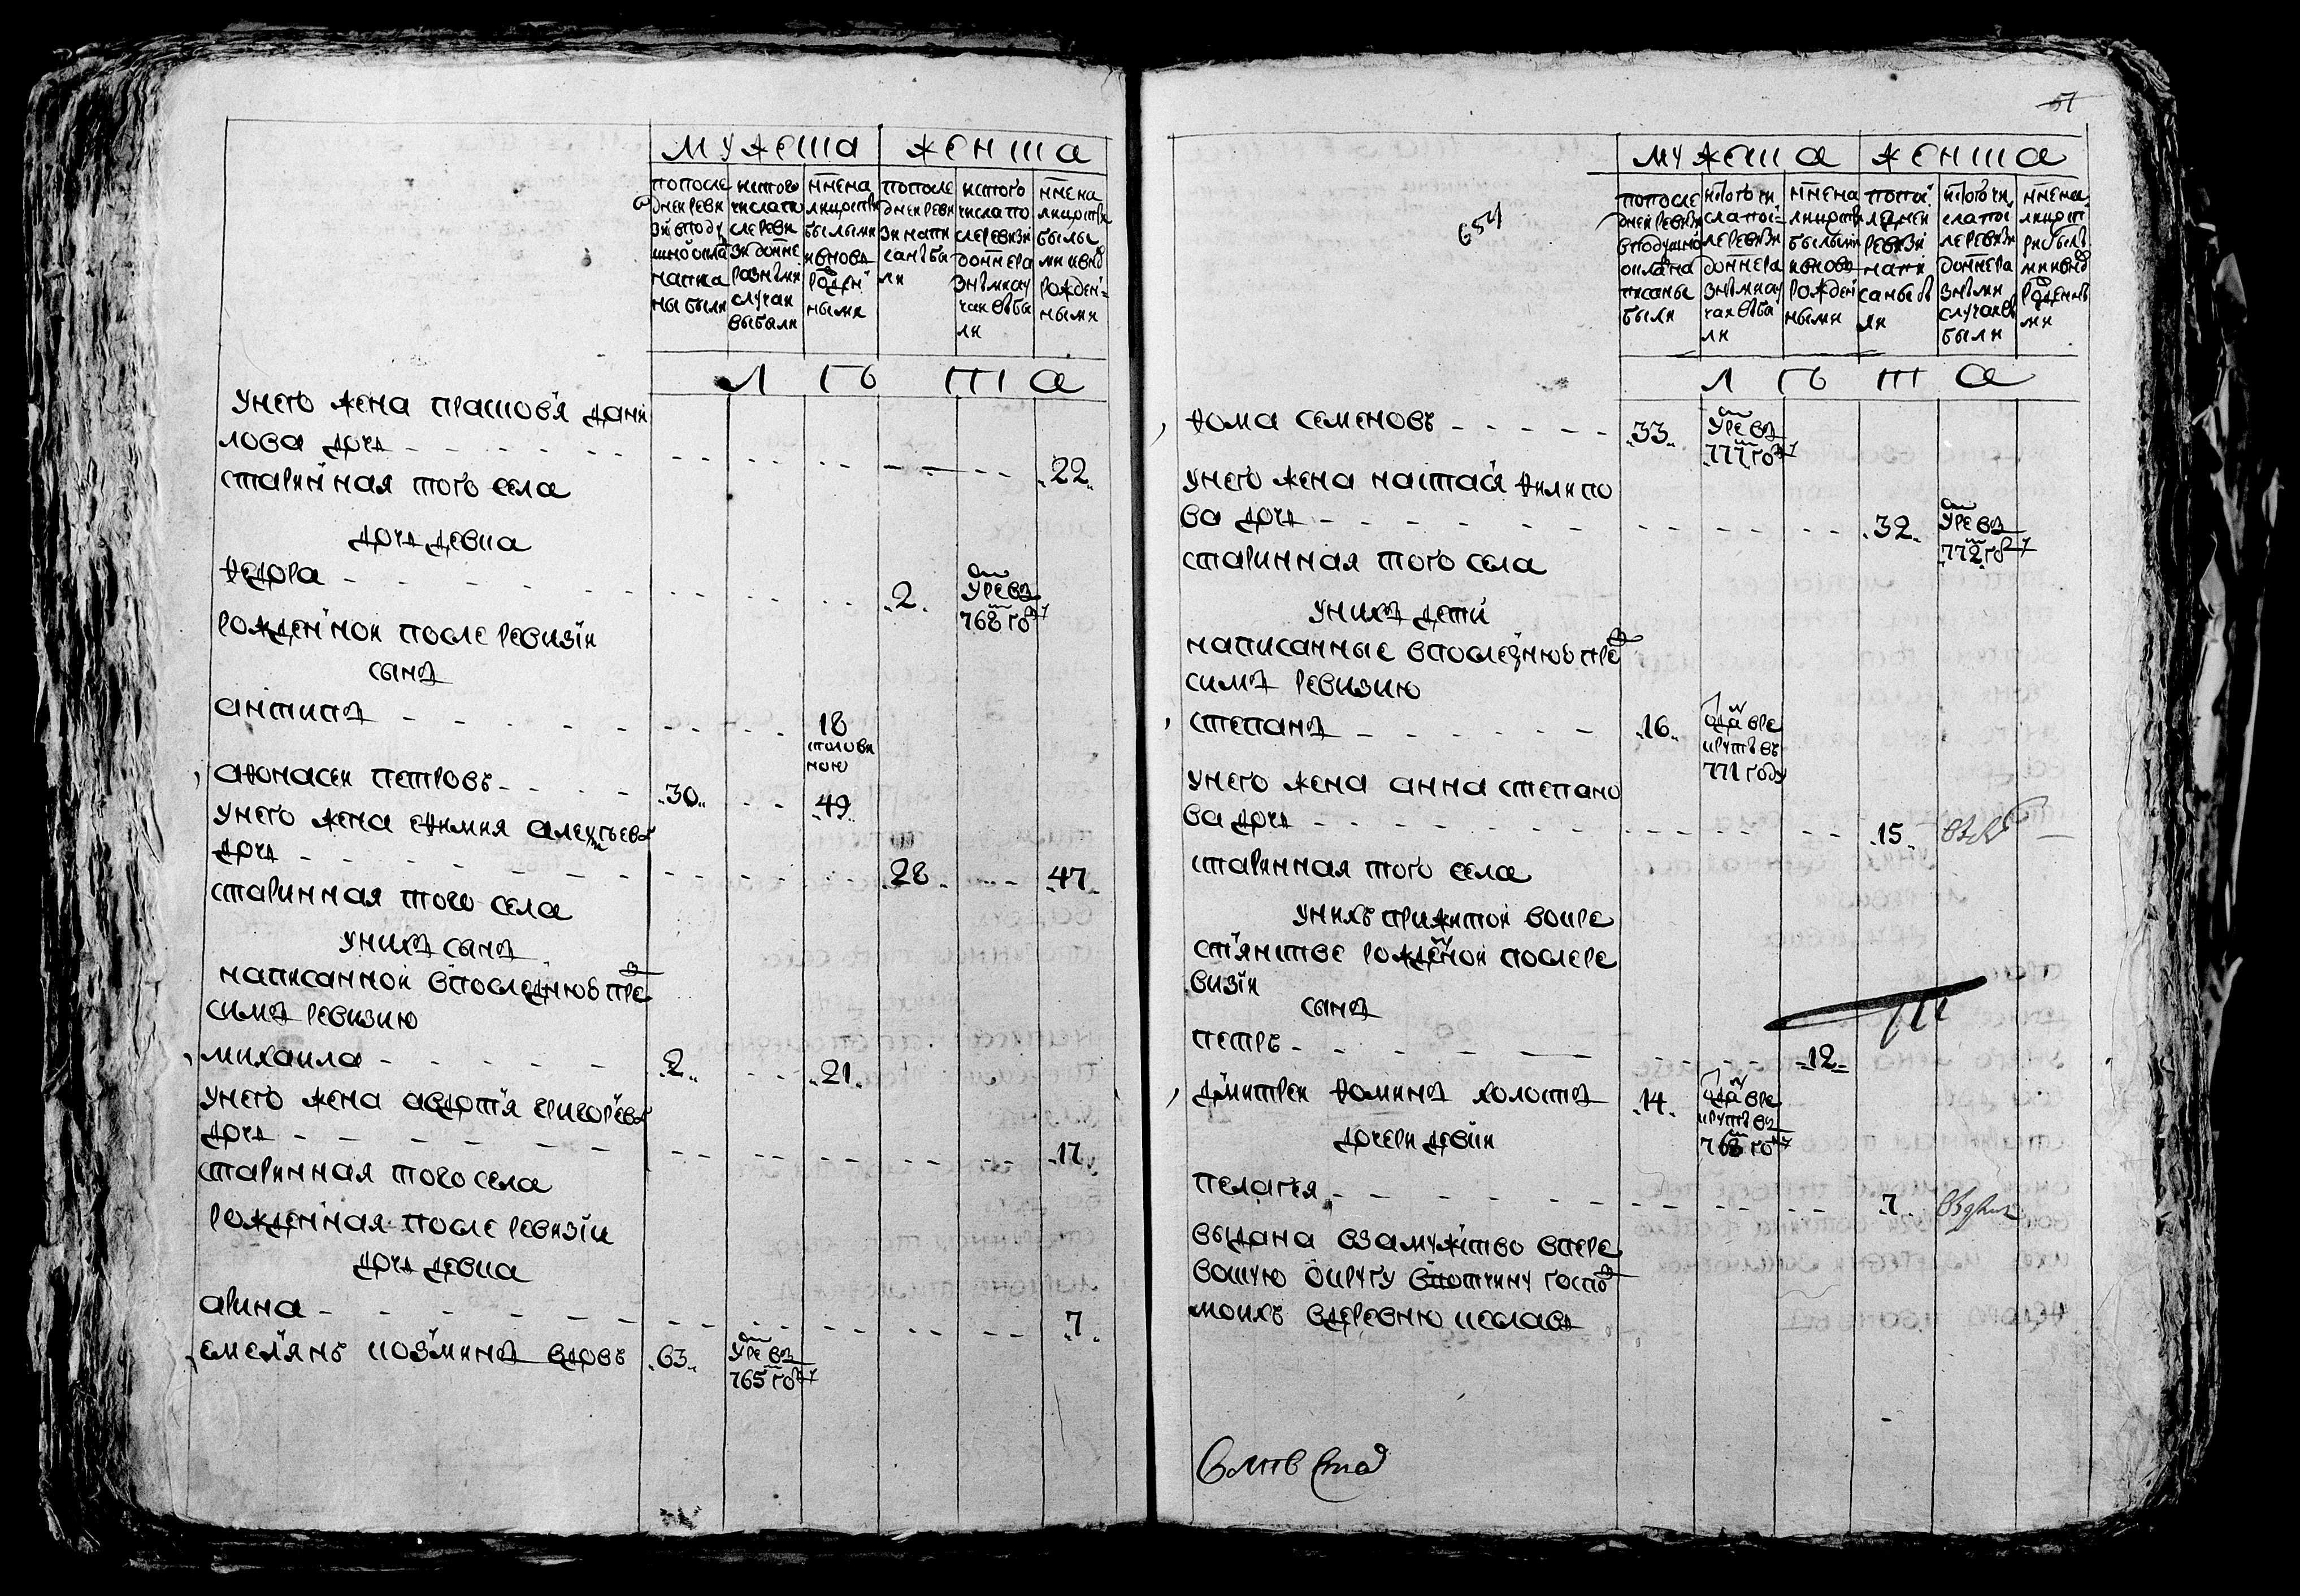 мужеска женска
попосле
дней реви
зіи вподу
шной окла
написа
ны были
истого
числа по
сле реви
зіи до нне
разными
случаи
выбыли
нне на
лицо стѣ
былыми
и вновь
рожден
ными
попосле
дней реви
зіи напи
саны бы
ли
истого
числа по
сле ревизи
до ннера
зными слу
чаи выбы
ли
нне на
лицо стѣ
былы
ми ивно
рожден
ными
лѣта
унего жена прасковя дани
лова дочь - - - - - - 22
старинная того села
дочь девка
ѳедора - - - - 2 умре въ 768 году
рожденной после ревизіи
сынъ
антипъ - - - - 18 сполови ною
аѳонасеи петровъ - - - 30 - - 49
унего жена еѳимия алексѣева
дочь - - - - - 28 - - 47
старинная того села
унихъ сынъ
написанной впоследнюю пред
симъ ревизию
михаила - - - - 2 - - 21
унего жена авдотя григорева
дочь - - - - - - 17
старинная того села
рожденная после ревизіи
дочь девка
арина - - - - - - 7
емелянъ козминъ вдовъ 63 умре въ 765 году
51
654
мужеска женска
попосле
дней ревизи
вподушно
окла на
писаны
были
истого чи
сла посл
леревизи
доннера
зными слу
чаи выбы
ли
нне на
лицо стѣ
былыми
ивновь
рожден
ными
попос
ледней
ревизи
напи
саны бы
ли
исто чи
сла пос
леревизи
доннера
зными
случаи вы
были
нне на
лицо т
былы
ми ивно
рожденны
ми
лѣта
ѳома семеновъ - - - - 33 умре въ 777 году
унего жена настася ѳилипо
ва дочь - - - - - 32 умре въ 772 году
старинная того села
унихъ дети
написанные впоследнюю пред
симъ ревизию
степанъ - - - - 16 отдан вре круты въ 771 году
унего жена анна степано
ва дочь - - - - - 15
старинная того села
унихъ прижитой вокре
стянстве рожденой послере
визіи
сынъ
петръ - - - - - 12
дмитреи ѳоминъ холостъ 14 отдан вре круты въ 768 году
дочери девки
пелагѣя - - - - - 7
выдана взамужство впере
вошую округу вотчину госпо
моихъ вдеревню